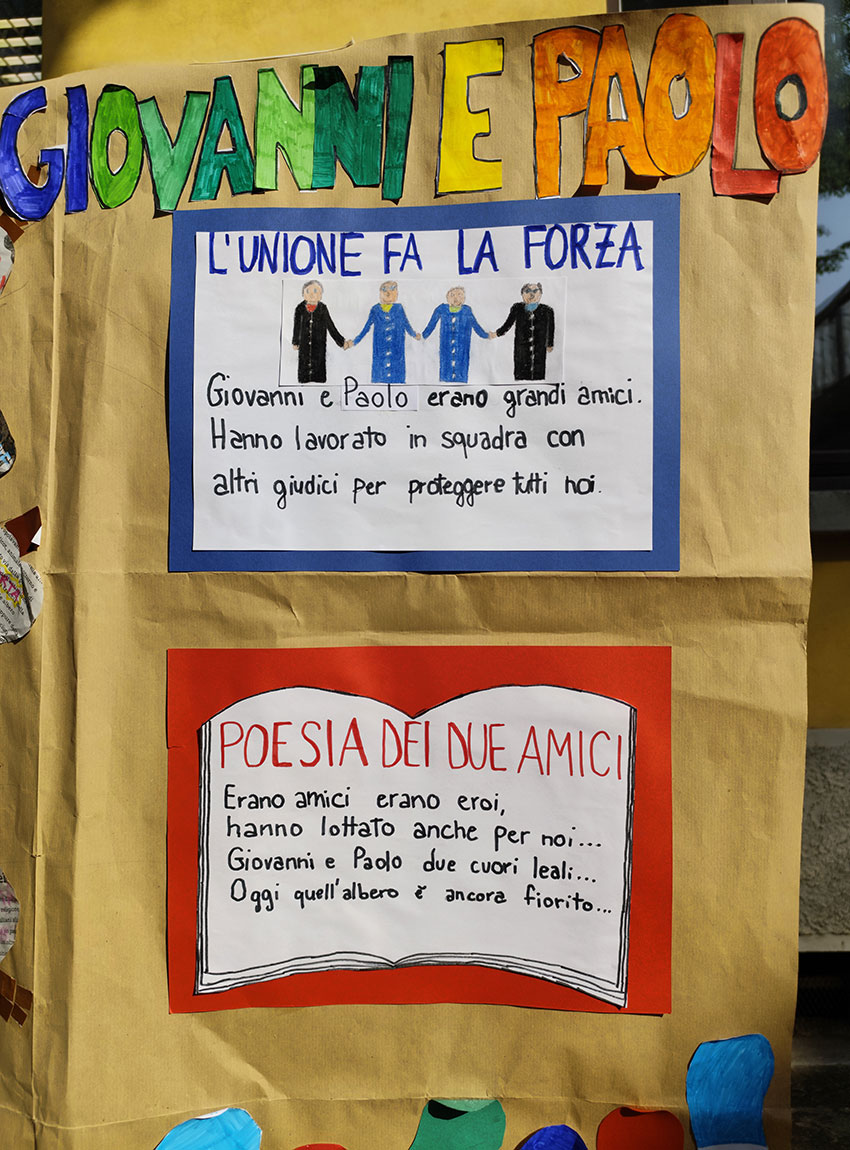 GIOVANNI E PAOLO
L'UNIONE FA LA FORZA
Giovanni e Paolo erano grandi amici.
Hanno lavorato in squadra con
altri giudici per proteggere tutti noi.
POESIA DEI DUE AMICI
Erano amici erano eroi,
hanno lottato anche per noi...
Giovanni e Paolo due cuori leali...
Oggi quell'albero è ancora fiorito...